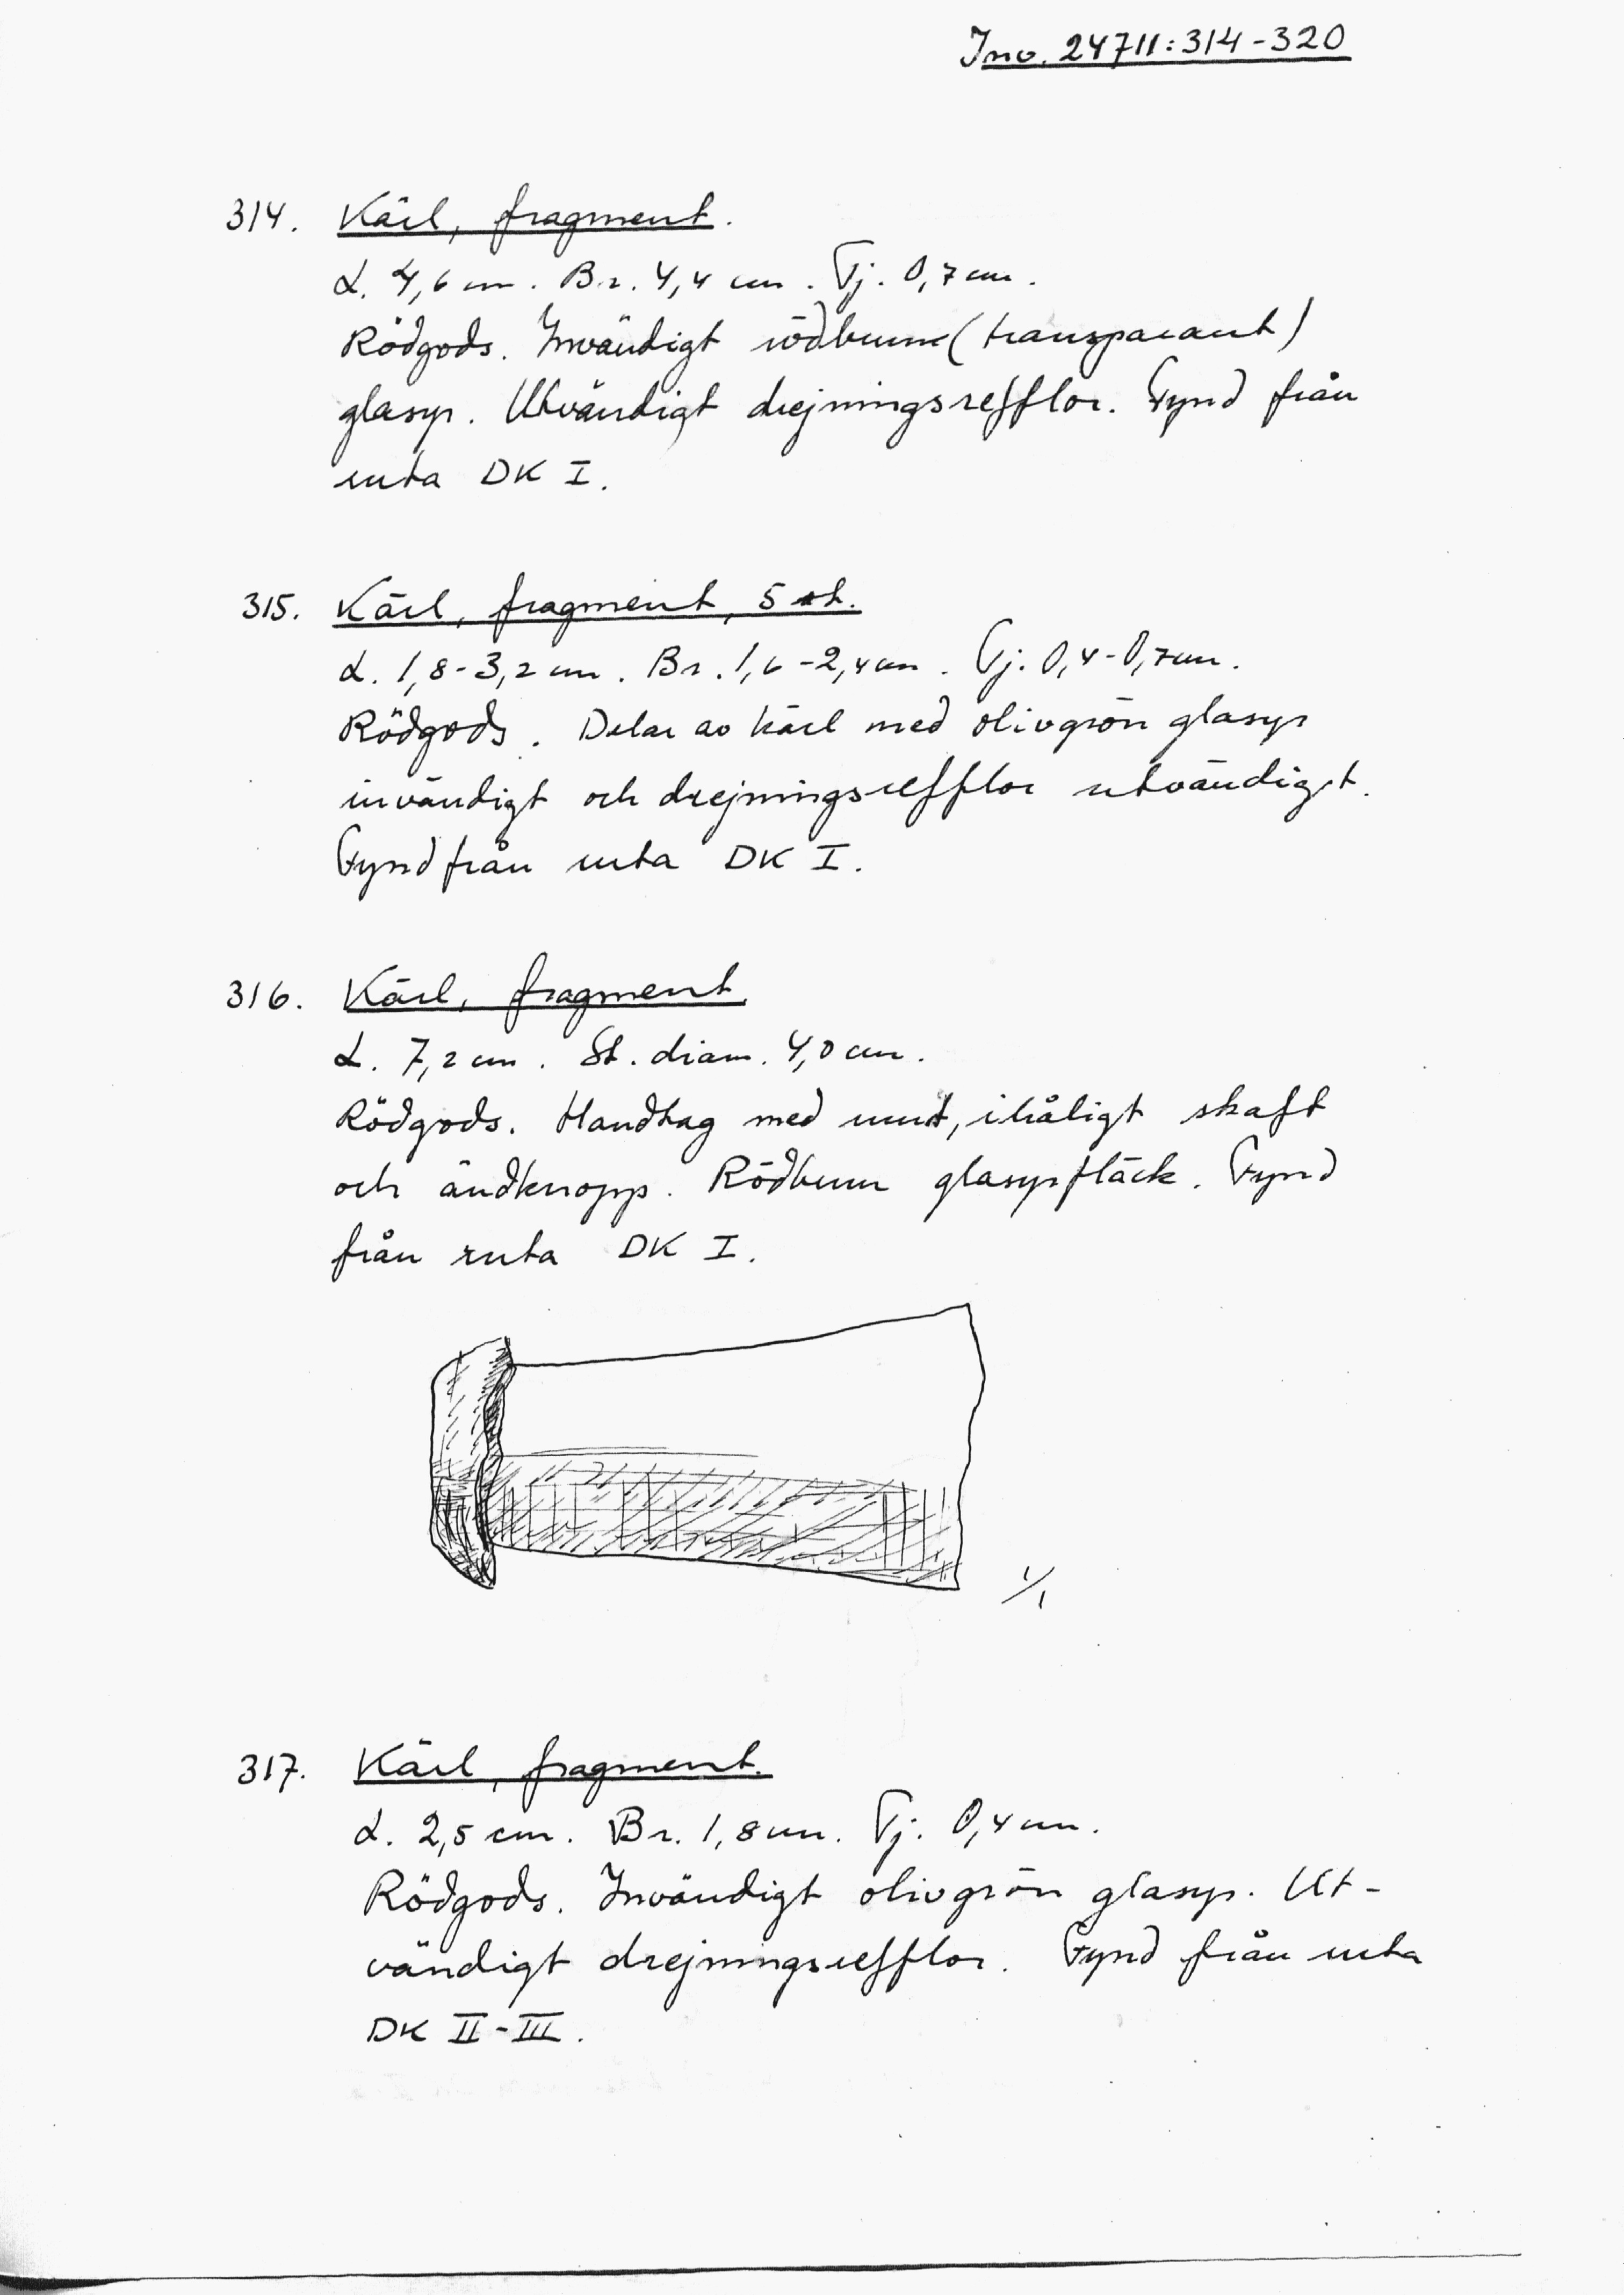 Inv. 24711:314-320
314. Kärl, fragment.
L. 4,6 cm. Br. 4,4 cm. Tj. 0,7 cm.
Rödgods. Invändigt rödbrun (transparant)
glasyr. Utvändigt drejningsrefflor. Fynd från
ruta DK I.
315. Kärl, fragment, 5 st.
L. 1,8-3,2 cm. Br. 1,6-2,4 cm. Tj. 0,4-0,7 cm.
Rödgods. Delar av kärl med olivgrön glasyr
invändigt och drejningsrefflor utvändigt.
Fynd från ruta DK I.
316. Kärl, fragment.
L. 7,2 cm. St. diam. 4,0 cm.
Rödgods. Handtag med runt, ihåligt skaft
och ändknopp. Rödbrun glasyrfläck. Fynd
från ruta DK I.
1/1
317. Kärl, fragment.
L. 2,5 cm. Br. 1,8 cm. Tj. 0,4 cm.
Rödgods. Invändigt olivgrön glasyr. Ut-
vändigt drejningsrefflor. Fynd från ruta
DK II-III.